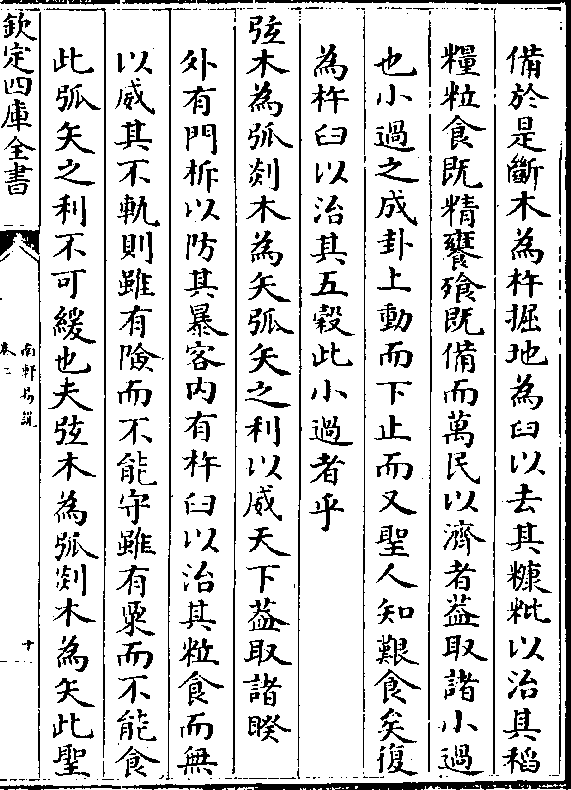 備於是斷木為杵掘地為臼以去其糠粃以治其稻
糧粒食既精饔飱既備而萬民以濟者葢取諸小過
也小過之成卦上動而下止而又聖人知艱食矣復
為杵臼以治其五穀此小過者乎
弦木為弧剡木為矢弧矢之利以威天下葢取諸睽
外有門柝以防其暴客内有杵臼以治其粒食而無
以威其不軌則雖有險而不能守雖有粟而不能食
此弧矢之利不可緩也夫弦木為弧剡木為矢此聖
欽定四庫全書
南軒易說
卷二
十